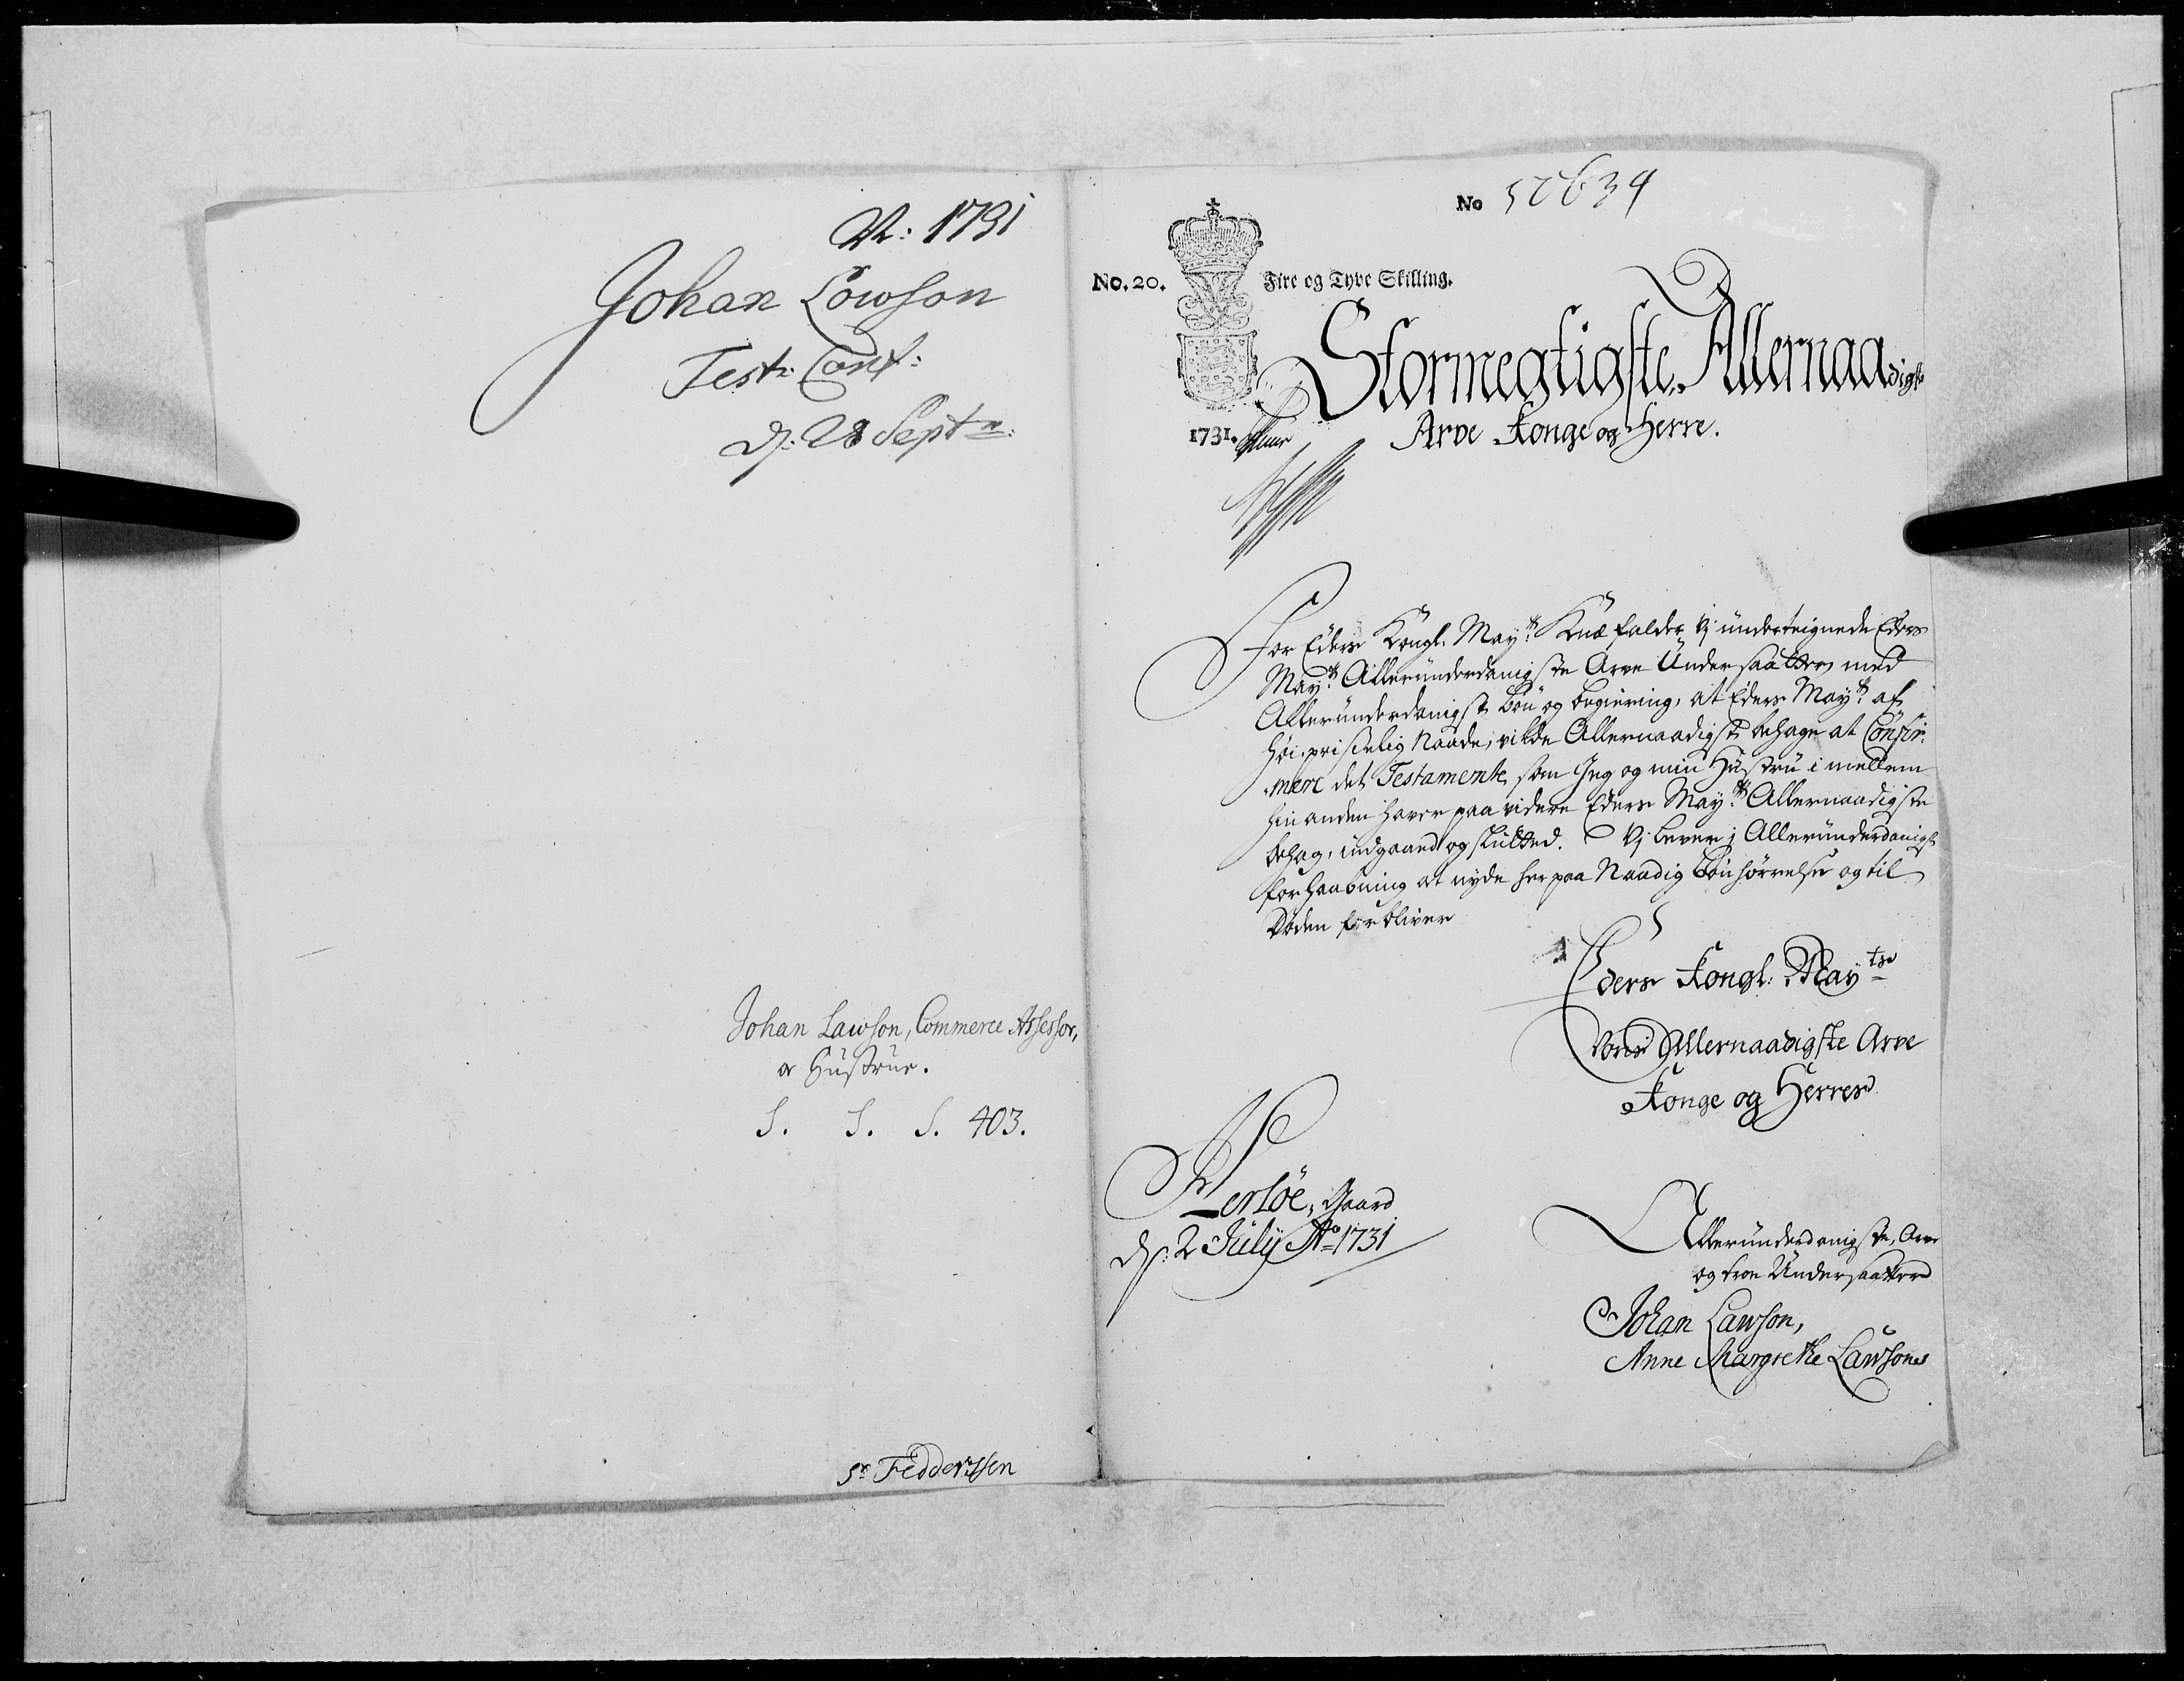 A: 1731
Johan Lowson
Test: Conf:
d: 28 Septr:
Johan Lawson, Commerce Assessor,
& Hüstrue.
S. S. S. 403.
Sr Feddersen
No 52634
No. 20.
Fire og Tyve Skilling.
1731.
Stormegtigste, Allernaadigste
Arve Konge og Herre.
For Eders Kongl. Mayts Knæfalder Vj underteignede Eders
Mayts Alleründerdanigste Arve Ündersaatter, med
Alleründerdanigst bön og begiering, at Eders Mayt af
høi-priselig Naade, vilde Allernaadigst behage at Confir-
mere det Testamente, som Jeg og min Hüstrü i mellem
hin anden haver paa videre Eders Mayts Allernaadigste
behag, indgaaed og slutted. Vj lever j Alleründerdanigst
forhaabning at nyde her paa Naadig bönhørrelse og til
Døden forbliver
Eders Kongl: Mayts
Vores Allernaadigste Arve
Konge og Herres
Gaard
d: 2 Julij Ao 1731
Alleründerdanigste, Arve
og troe Ündersaatter
Johan Lawson,
Anne Margrethe Lawsons